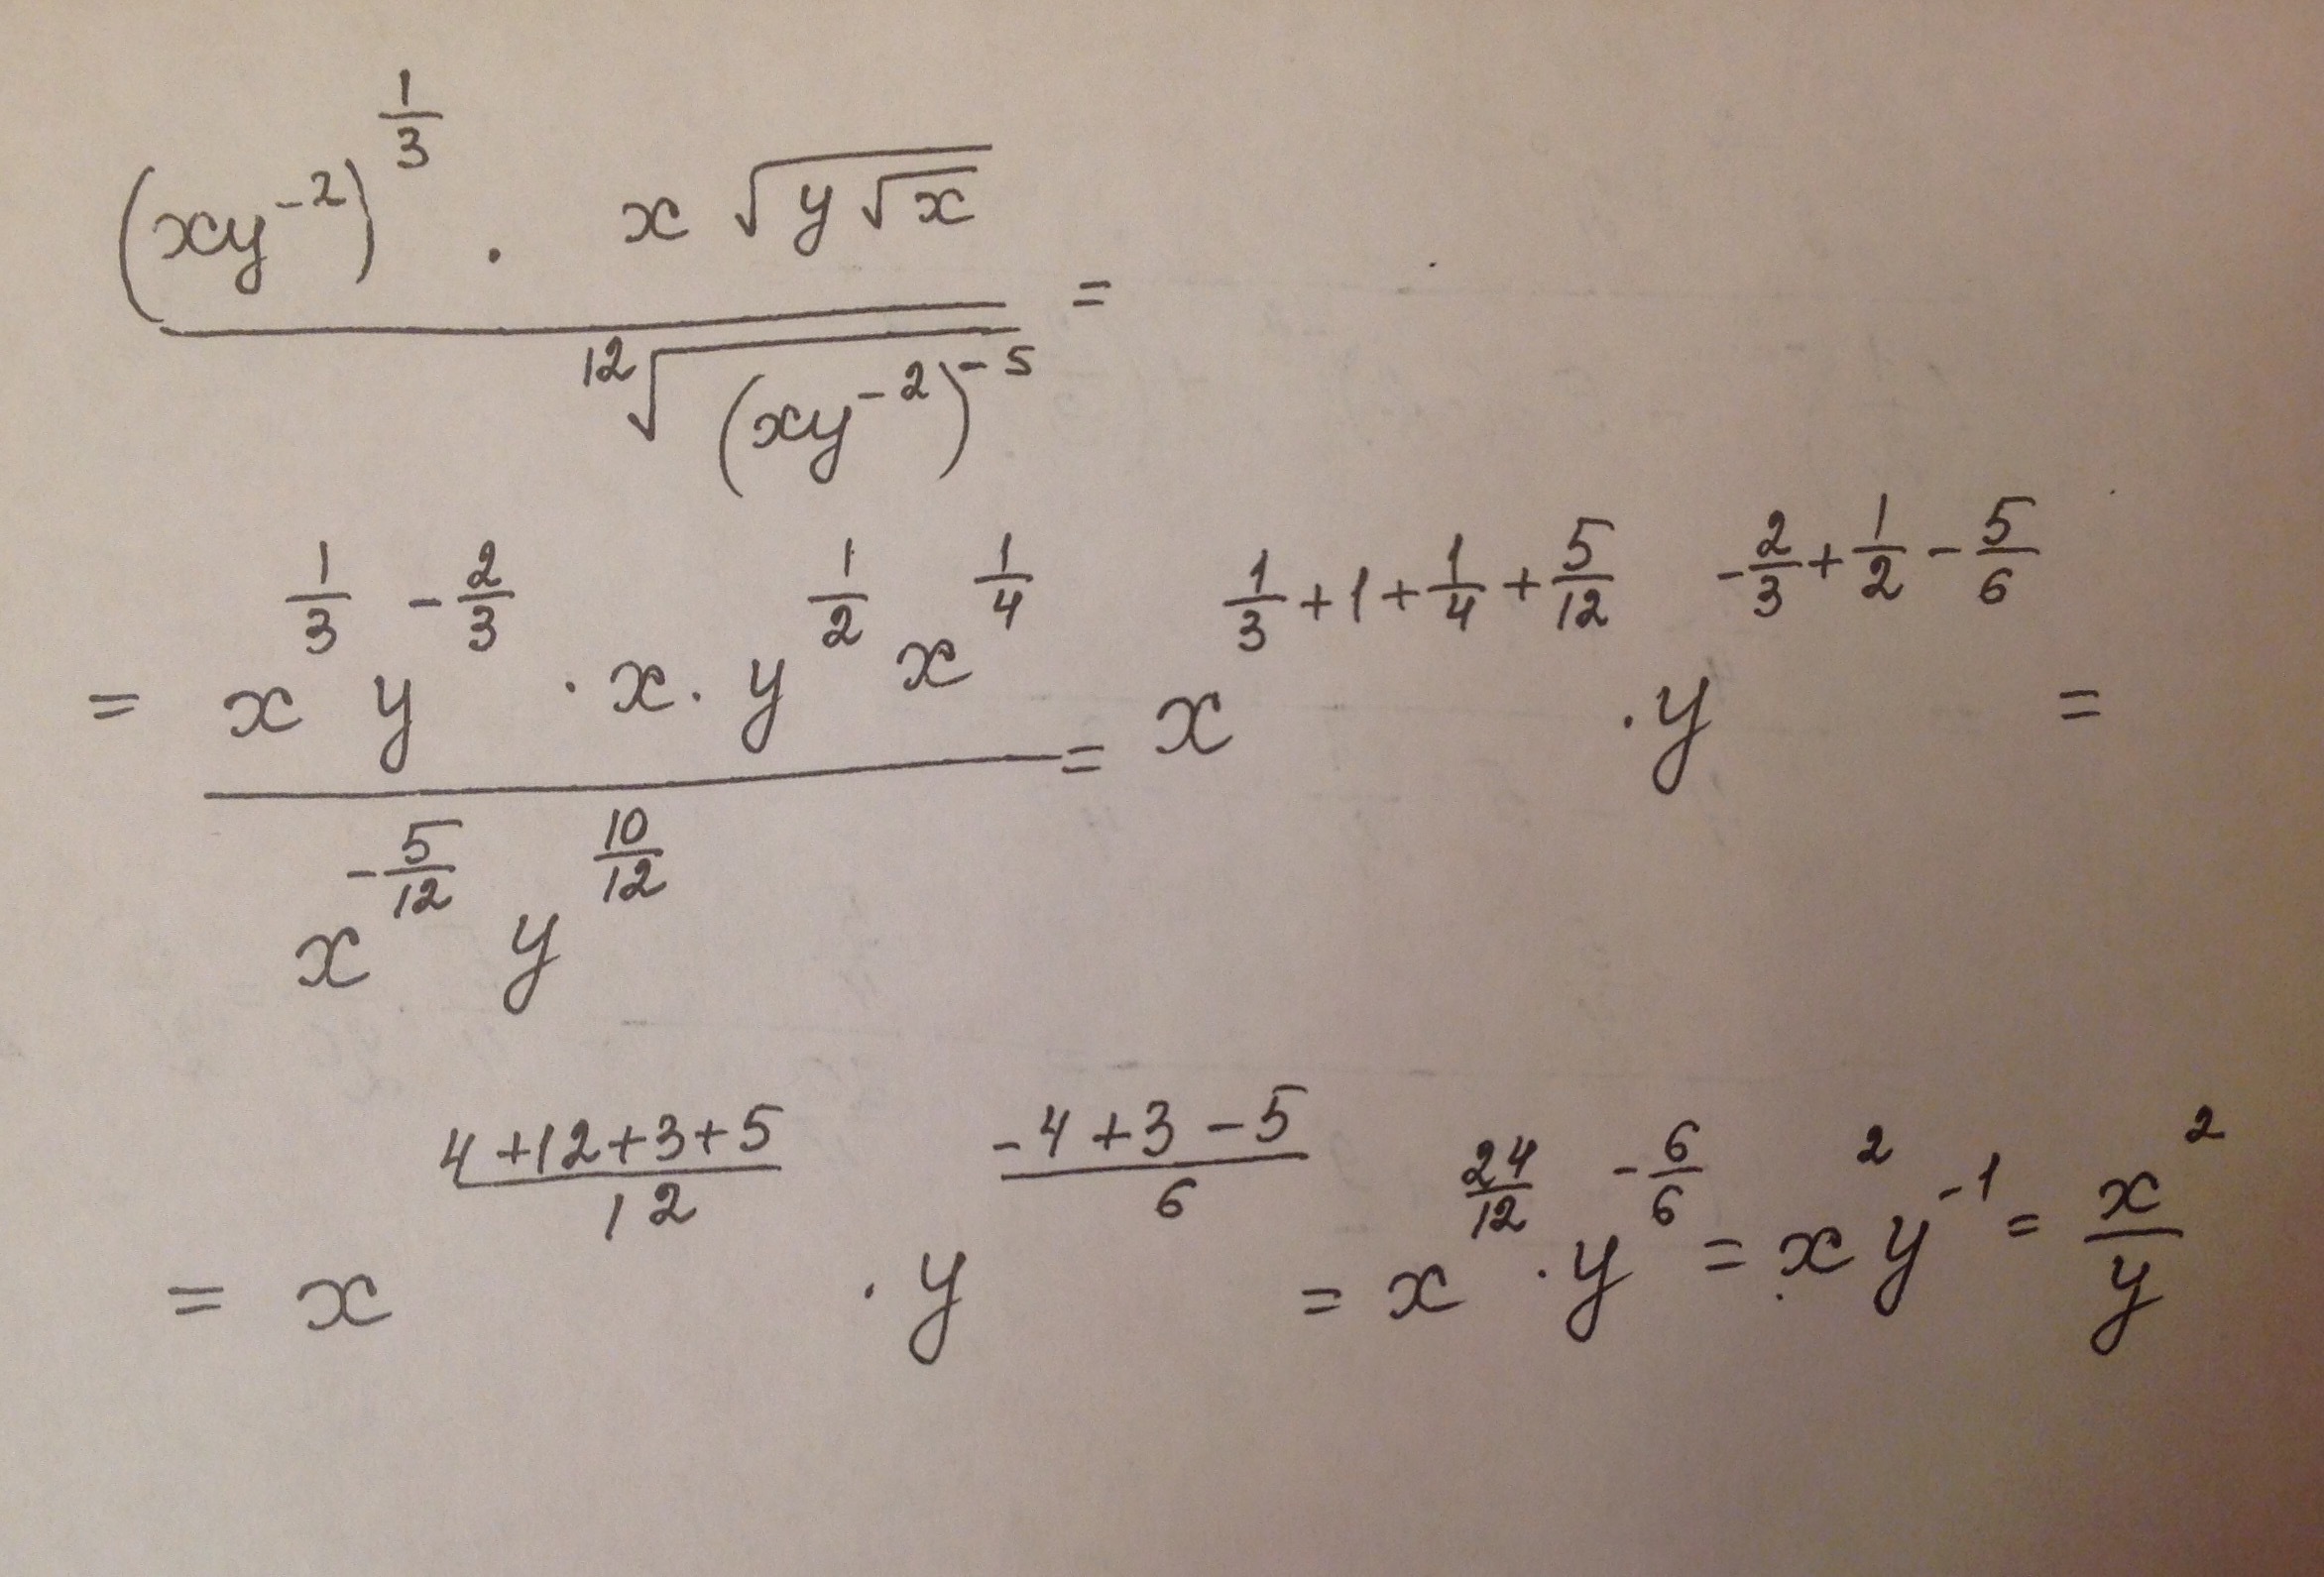 (xy⁻²)^(1/3) · x √(y√x) / ¹²√((xy⁻²)⁻⁵) =
= x^(1/3) y^(-2/3) · x · y^(1/2) x^(1/4) / x^(-5/12) y^(10/12) = x^(1/3+1+1/4+5/12) · y^(-2/3+1/2-5/6) =
= x^((4+12+3+5)/12) · y^((-4+3-5)/6) = x^(24/12) · y^(-6/6) = x² y⁻¹ = x²/y